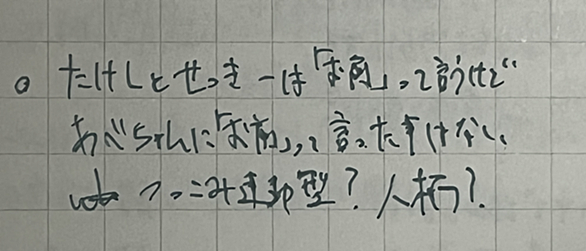 。たけしとせっきーは「お前」って言うけど
あべちゃんに「お前」って言った事はない、
つっこみ連動型？人柄？